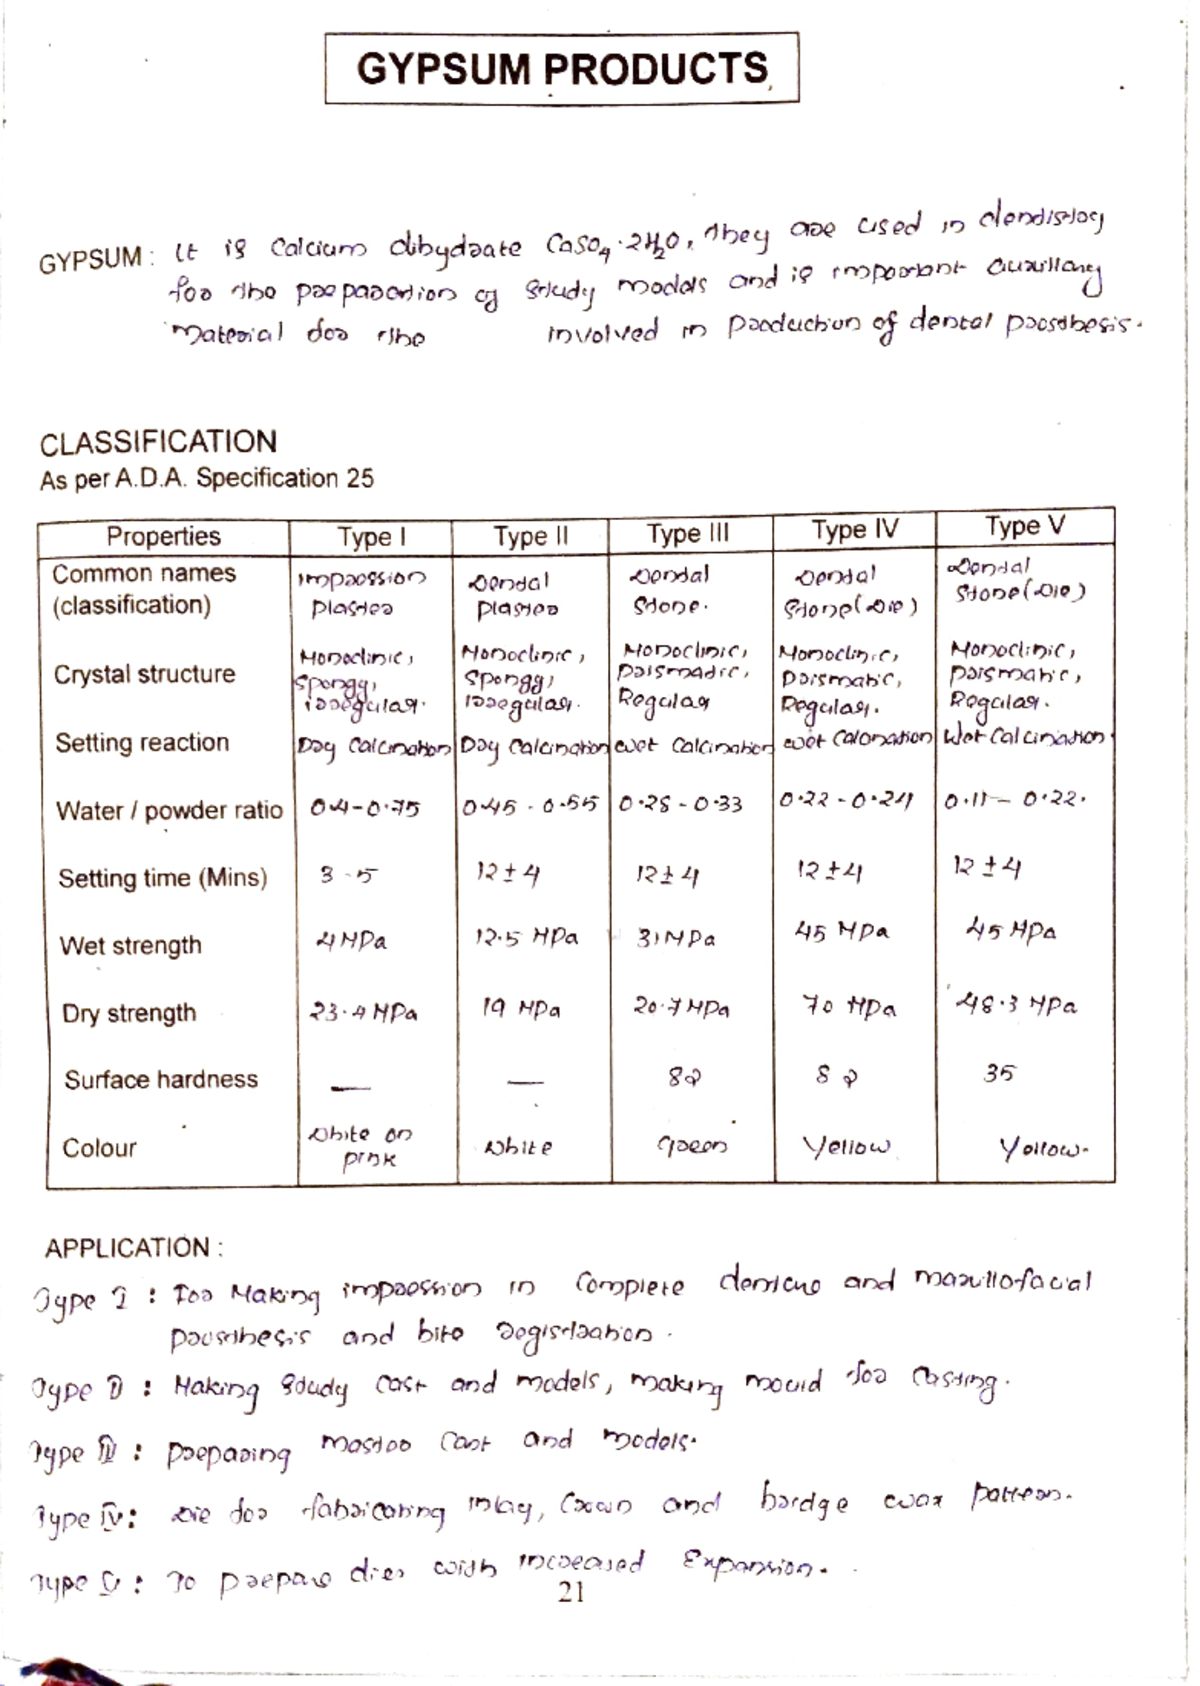 GYPSUM PRODUCTS
GYPSUM : It is Calcium dihydrate CaSO4.2H2O, they are used in dendistry
for the preparation of study models and is important auxillary
Material for the involved in production of dental prosthesis.
CLASSIFICATION
As per A.D.A. Specification 25
Properties Type I Type II Type III Type IV Type V
Common names (classification) Impression Plaster Dendal Plaster Dendal Stone. Dendal Stone (Die) Dendal Stone (Die)
Crystal structure Monoclinic, Spongy, irregular. Monoclinic, Spongy, Irregular. Monoclinic, Prismadic, Regular Monoclinic, Prismatic, Regular. Monoclinic, Prismatic, Regular.
Setting reaction Dry Calcination Dry Calcination Wet Calcination Wet Calcination Wet Calcination
Water / powder ratio 0.4-0.75 0.45 - 0.55 0.28 - 0.33 0.22 - 0.24 0.11 - 0.22.
Setting time (Mins) 3 - 5 12 ± 4 12 ± 4 12 ± 4 12 ± 4
Wet strength 4 MPa 12.5 MPa 31 MPa 45 MPa 45 MPa
Dry strength 23.4 MPa 19 MPa 20.7 MPa 70 MPa 48.3 MPa
Surface hardness — — 82 82 35
Colour White or pink White Green Yellow Yellow.
APPLICATION :
Type I : For Making impression in Complete denture and maxillofacial
Prosthesis and bite registration.
Type II : Making study cast and models, making mould for Casting.
Type III : Preparing master Cast and models.
Type IV : Die for fabricating inlay, Crown and bridge wax pattern.
Type V : To prepare dies with increased Expansion.
21